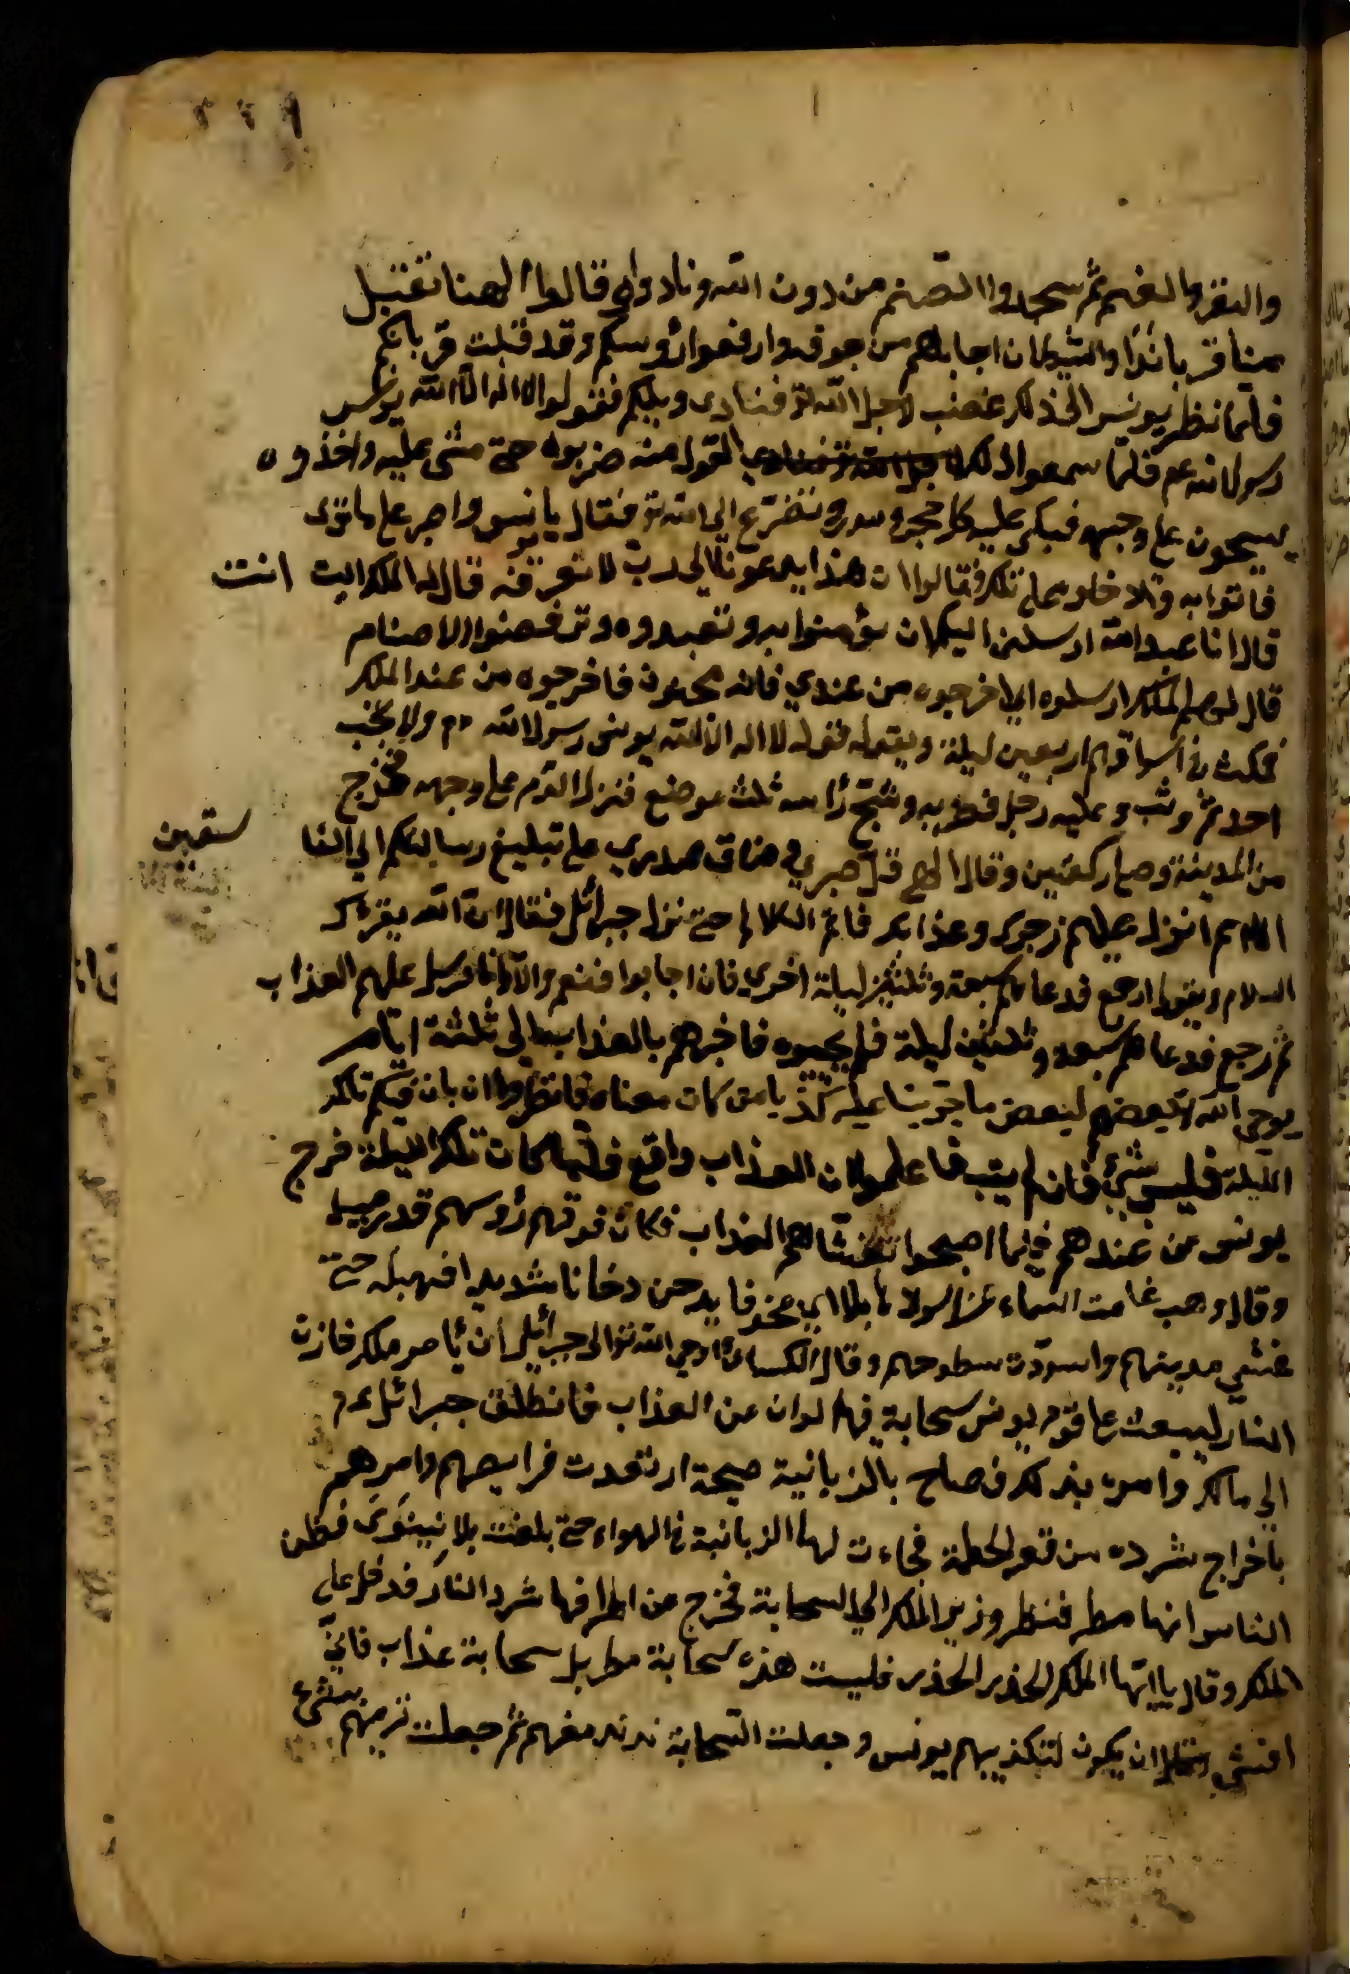 والبقر والغنم ثم سجدوا الصنم من دون الله ونادوا وقالوا الهنا تقبل
منا قرباننا والشيطان اجابهم من جوفه وارفعوا رؤسكم وقد قبلت قربانكم
فلما نظر يونس الى ذلك غضب لاجل الله تع فنادى ويلكم فقولوا لا اله الا الله يونس
رسول الله عم فلما سمعوا ذلك القول منه ضربوه حتى غشى عليه واخذوه
يسحبون على وجهه فبكى عليه كل حجر ومدر وتضرع الى الله تع فقال يا يونس واصبر على ما ترى
فاتوا به فقالوا ان هذا يدعونا الى رب لا نعرفه قال له الملك انت
قال انا عبد الله ارسلني اليكم ان تؤمنوا به وتعبدوه وترفضوا الاصنام
قال لهم الملك ارسلوه اي اخرجوه من عندي فانه مجنون فاخرجوه من عند الملك
فمكث في اسواقهم اربعين ليلة ويقول قولوا لا اله الا الله يونس رسول الله ولا يجب
احد ثم وثب عليه رجل فضربه وشج رأسه ثلث موضع فنزل الدم على وجهه فخرج
من المدينة وصلى ركعتين وقال الهى قل صبري وضاق صدري على تبليغ رسالتكم الى
سقين
اللهم انزل عليهم زجرك وعذابك فاتم الكلام حتى نزل جبرائل فقال ان الله يقرءك
السلام ويقول ارجع فدعاهم سبعة وثلثين ليلة اخرى فان اجابوا فنعم والا فانا مرسل عليهم العذاب
ثم رجع فدعاهم سبعة وثلثين ليلة فلم يجيبوه فاخبرهم بالعذاب الى ثلثة ايام
يوحى الله بعضهم لبعض ما جربنا عليه كذبا من كان معناه فانظروا ان بات فيكم تلك
الليلة فليس بشئ فان لم يبت فاعلموا ان العذاب واقع فلما كان تلك الليلة خرج
يونس من عندهم فلما اصبحوا تغشاهم العذاب فكان فوق رؤسهم قدر ميل
وقال وهب غامت السماء غيما اسودا هائلا اي مخوفا يدخن دخانا شديدا فهبط حتى
غشي مدينتهم واسودت سطوحهم وقال الكسائى اوحى الله تع الى جبرائل ان يأمر ملك خازن
النار ليبعث على قوم يونس سحابة فيها الوان من العذاب فانطلق جبرائل عم
الى مالك وامره بذلك فصاح بالزبانية صيحة ارتعدت فرايصهم وامرهم
باخراج شرره من قعر الحطمة فجاءت لها الزبانية في الهواء حتى بلغت بلاد نينوى فظن
الناس انها مطر فنظر وزير الملك الى السحابة تخرج من اطرافها شرر النار فدخل على
الملك وقال يا ايها الملك الحذر الحذر فليست هذه سحابة مطر بل سحابة عذاب فاني
اخشى ان يكون لتكذيبهم يونس وجعلت السحابة تدنو منهم ثم جعلت ترميهم بشئ